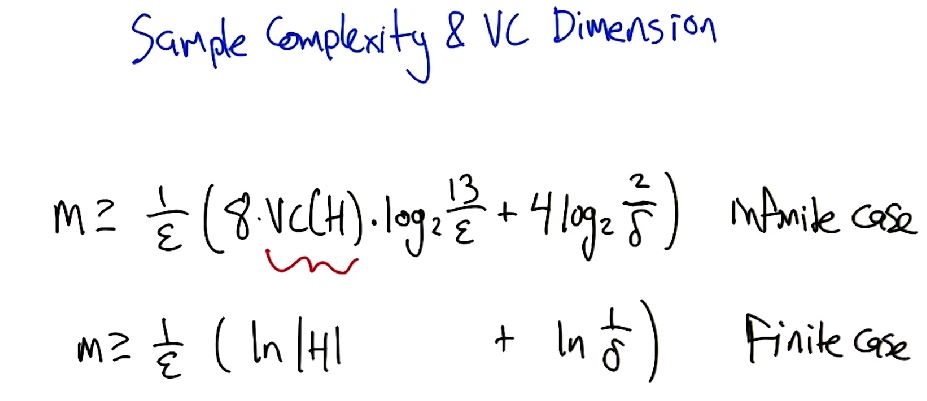 Sample Complexity & VC Dimension
m ≥ 1/ε (8·VC(H)·log₂ 13/ε + 4 log₂ 2/δ) infinite case
m ≥ 1/ε (ln |H| + ln 1/δ) Finite case